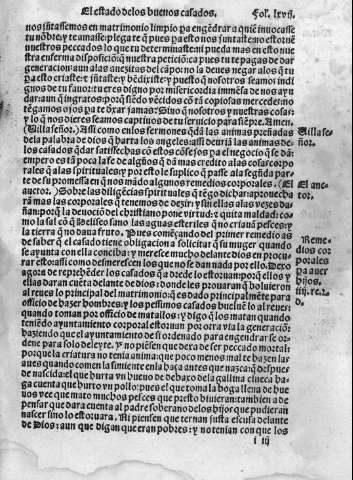 El estado de los buenos casados. Fol. lxvij.
nos jūtassemos en matrimonio limpio pa engēdrar a quiē inuocasse
tu nōbre: y te amasse: plega te q̄ pues pa esto nos juntaste: no estorue
nuestros peccados lo que tu determinaste: ni pueda mas en esto nue
stra enferma disposiciō: q̄ nuestra peticiō: ca pues tu te pagas de dar
generacion: aun alas auezitas del cāpo: no la deues negar alos q̄ tu
pa esto criaste: y jūtaste: y bēdixiste: y puesto q̄ nosotros seamos indi
gnos de tu fauor: tu eres digno por misericordia immēsa de nos ayu
dar: aun q̄ ingratos: por q̄ siendo vēcidos cō tā copiosas mercedes: no
tēgamos ojos pa te dexar jamas: Sino q̄ nosotros y nuestras cosas
y lo q̄ nos dieres seamos captiuos de tu seruicio para siēpre. Amen.
(Villaseñor.) Assi como en los sermones q̄ dā las animas preñadas
de la palabra de dios q̄ harta los angeles: assi deuriā las animas de
los casados q̄dar satisfechas cō estos cōsejos pa el negocio q̄ se dā:
empero es tā poca la fe de algūos q̄ dā mas credito alas cosas corpo
rales q̄ alas spirituales: y por esto le suplico q̄ passe ala segūda par
te de su promessa: en q̄ nos mādo algunos remedios corporales. (El
auctor.) Sobre las diligēcias spirituales q̄ tēgo dichas: aprouecha
rā mas las corporales
ñan: porq̄ la deuociō del christiano pone virtud: e quita maldad: co
mo la sal cō q̄
la tierra q̄ no daua fruto. Pues començando del primer remedio as
de saber q̄ el casado tiene obligacion a solicitar q̄ su muger quando
se ayunta con ella conciba: y meresce mucho delante dios en procu
rar esto: assi como desmerescen los que no se dan nada por ello. De o
agora de reprehēder los casados
ellas daran cuēta delante de dios: donde les prouaran q̄ boluieron
al reues lo principal del matrimonio: q̄ es dado principalmēte para
officio de hazer hombres: y los pessimos casados bueluē lo al reues
quando toman por officio de matallos: y digo q̄ los matan quando
teniēdo ayuntamiento corporal estoruan por otra via la generaciō:
haziendo que el ayuntamiento de si ordenado para engendrar se or
dene para solo deleyte. Y no piēsen que dexa de ser peccado mortal:
porque la criatura no tenia anima: que poco menos mal te hazen las
aues quando comen la simiente en la haça antes que nazca: q̄ despues
de nascida: el que hurta vn hueuo de debaxo de la gallina clueca ha
ga cuenta que hurto vn pollo: pues el que toma la boga llena de hue
uos vee que mato muchos peces que presto biuieran: tambien a de
pensar que dara cuenta al padre soberano de los hijos que pudieran
nascer sino lo estoruara. Ni piensen que ternan justa escusa delante
de Dios: aun que digan que eran pobres: y no tenian con que los
i iij
Villase
ñor.
El auc
tor.
Reme
dios cor
porales
pa auer
hijos.
iiij. re. 2.
d.